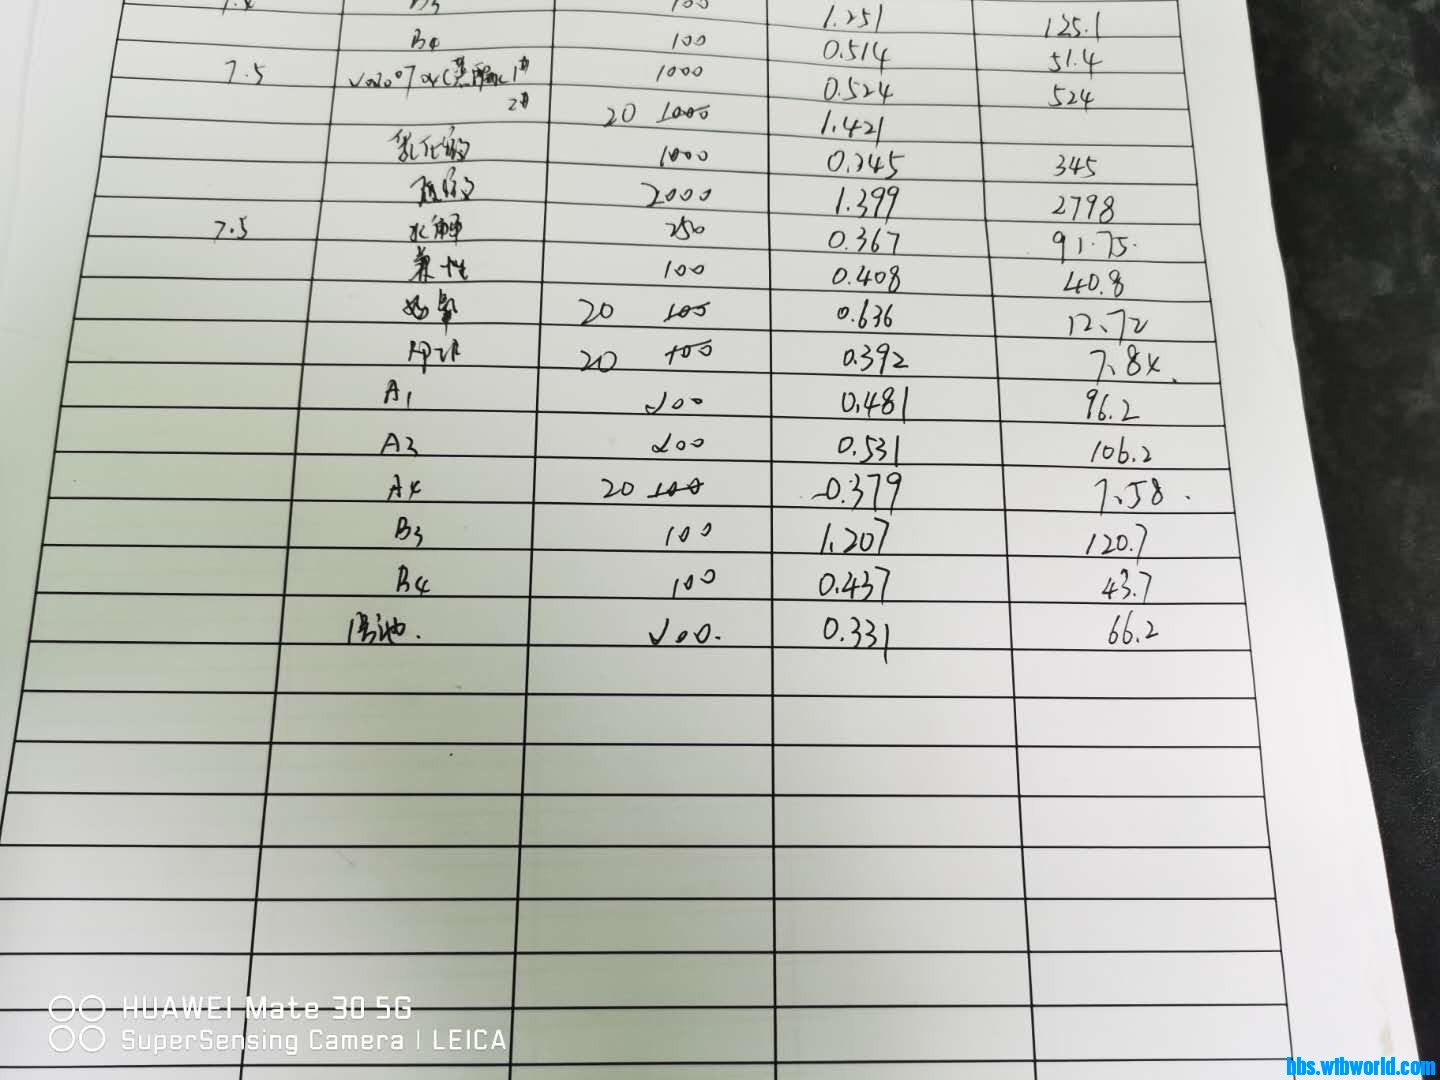 7.4 B3 100 1.251 125.1
B4 100 0.514 51.4
7.5 1# 1000 0.524 524
2# 20 1000 1.421
乳化液 1000 0.345 345
2000 1.399 2798
7.5 水解 250 0.367 91.75
兼性 100 0.408 40.8
好氧 20 100 0.636 12.72
20 100 0.392 7.84
A1 200 0.481 96.2
A3 200 0.531 106.2
A4 20 100 0.379 7.58
B3 100 1.207 120.7
B4 100 0.437 43.7
200 0.331 66.2
HUAWEI Mate 30 5G
SuperSensing Camera | LEICA
bbs.wtbworld.com